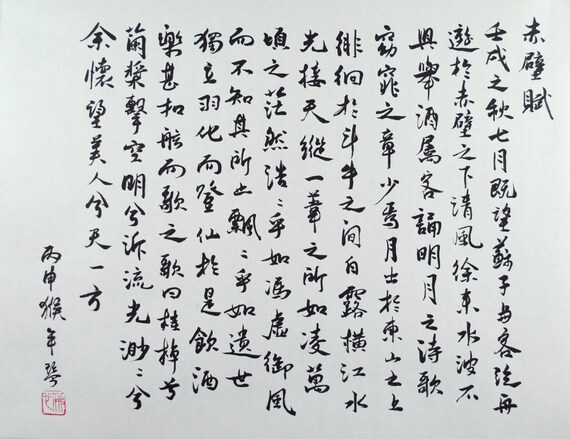 赤壁賦
壬戌之秋七月既望蘇子与客泛舟
遊於赤壁之下清風徐来水波不
興舉酒属客誦明月之诗歌
窈窕之章少焉月出於東山之上
徘徊於斗牛之间白露橫江水
光接天縱一葦之所如凌萬
頃之茫然浩〻乎如馮虛御風
而不知其所止飄〻乎如遺世
獨立羽化而登仙於是飲酒
樂甚扣舷而歌之歌曰桂棹兮
蘭槳擊空明兮泝流光渺〻兮
余懷望美人兮天一方
丙申猴年琴